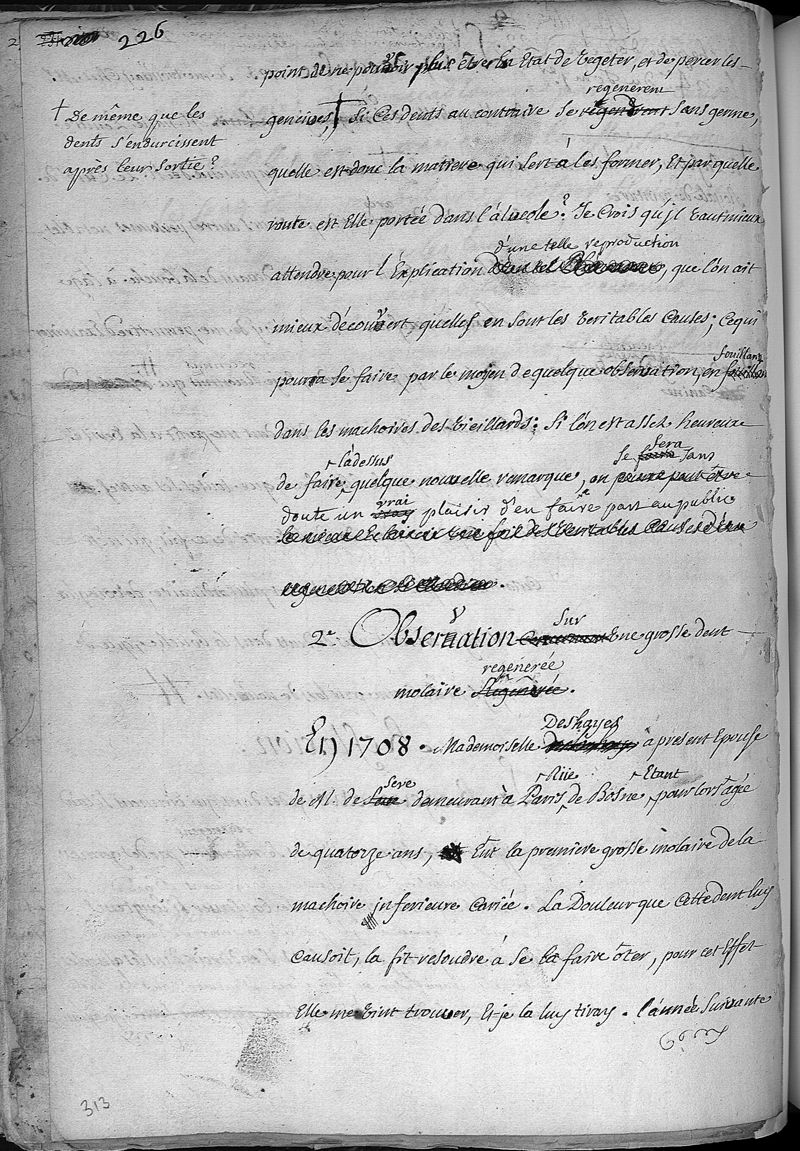 226
point de ne pouvoir plus etre en Etat de vegeter, et de percer les
† De même que les
dents s'endurcissent
après leur sortie ?
regenerent
gencives, † Si Ces dents au contraire se regenerent sans germe,
quelle est donc la matiere qui sert à les former, Et par quelle
route est Elle portée dans l'alveole ? Je Crois qu'il vaut mieux
d'une telle reproduction
attendre pour l'Explication d'un tel, que l'on ait
mieux découvert, quelles en sont les veritables Causes ; Ce qui
fouillant
poura se faire par le moyen de quelque observation, en
dans les machoires des vieillards ; Si l'on est assez heureux
ladessus se fera sans
de faire quelque nouvelle remarque, on
doute un vrai plaisir d'en faire part au public
2e Observation sur Une grosse dent
regenerée
molaire Regénérée.
Deshayes
En 1708. Mademoiselle à present Epouse
Seve Rüe Etant
de M. de demeurant à Paris de Bosne pour lors agée
de quatorze ans, Eut la premiere grosse molaire de la
machoire inferieure Cariée. La Douleur que Cette dent luy
Causoit, la fit resoudre à se la faire ôter, pour cet Effet
Elle me vint trouver, Et je la luy tiray. l'année Suivante
313